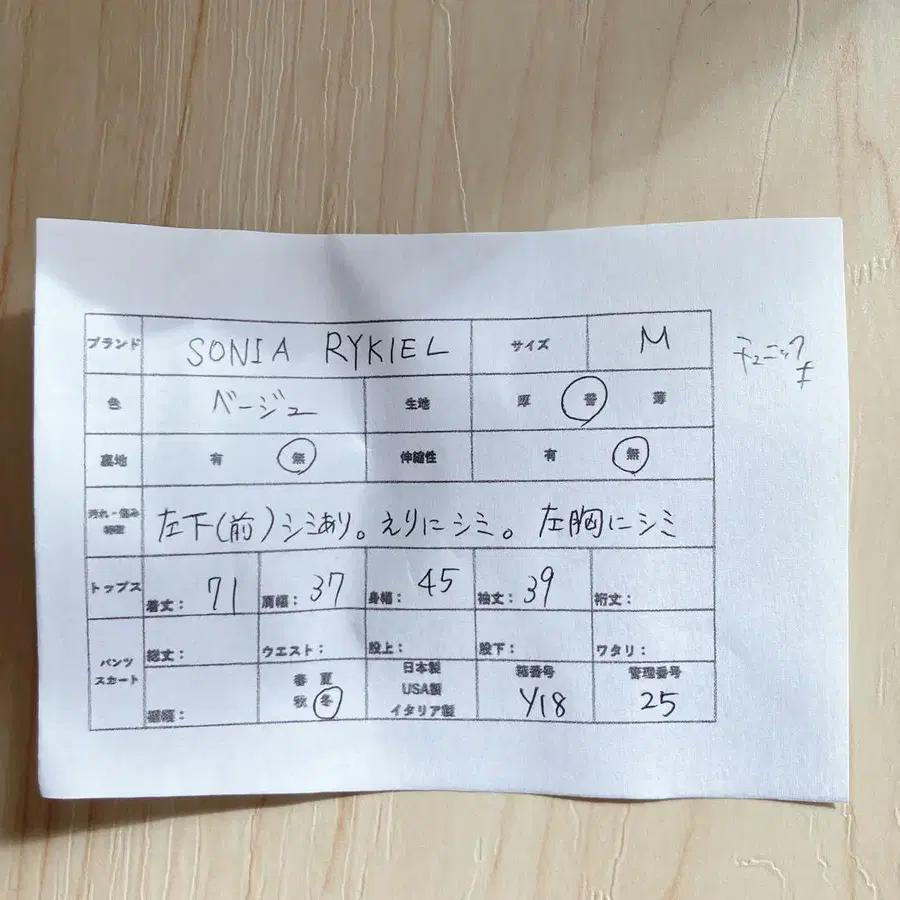 ブランド SONIA RYKIEL サイズ M
チュニック
色 ベージュ 生地 厚 普 薄
裏地 有 無 伸縮性 有 無
汚れ・傷み
特徴
左下(前)シミあり。えりにシミ。左胸にシミ
トップス 着丈: 71 肩幅: 37 身幅: 45 袖丈: 39 裄丈:
パンツ
スカート
総丈: ウエスト: 股上: 股下: ワタリ:
裾幅:
春 夏
秋 冬
日本製
USA製
イタリア製
箱番号
Y18
管理番号
25